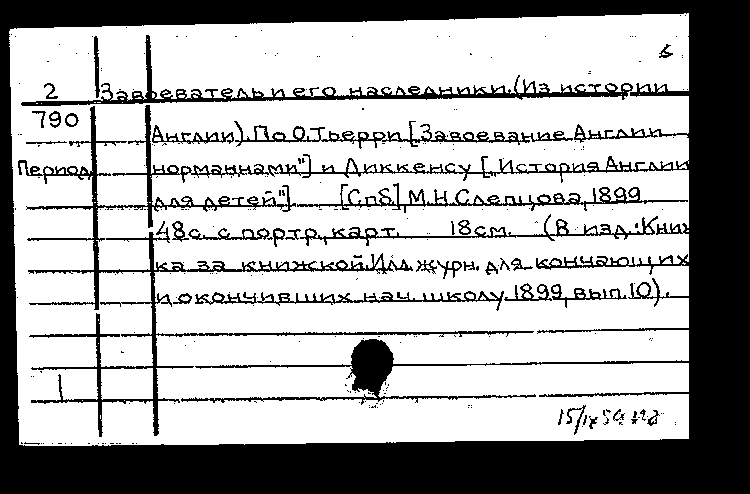 2 Завоеватель и его наследники. (Из истории
790
Англии). По О. Тьерри [Завоевание Англии
Период. норманнами"] и Диккенсу [„История Англии
для детей"]. [Спб], М.Н. Слепцова, 1899.
48с. с портр., карт. 18см. (В изд.: Книж
ка за книжкой. Илл. журн. для кончающих
и окончивших нач. школу. 1899, вып. 10).
1